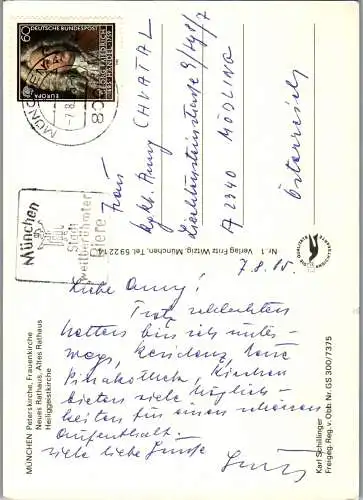 60
DEUTSCHE BUNDESPOST
GEORG FRIEDRICH
HÄNDEL
EUROPA
MÜNCHEN
-7.8.
München
Stadt
weltberühmter
Biere
Frau
Anny CHVATAL
9/498/7
A 2340 MÖDLING
Österreich
Nr. 1 Verlag Fritz Witzig, München, Tel. 59 22 14
7.8.85
Liebe Anny!
Trotz schlechten
Wetters bin ich unter-
wegs, Residenz, Neue
Pinakothek, Kirchen
bieten viele Möglich-
keiten für einen schönen
Aufenthalt.
Viele liebe Grüße
MÜNCHEN Peterskirche, Frauenkirche
Neues Rathaus, Altes Rathaus
Heiliggeistkirche
Karl Schillinger
Freigeg. Reg. v. Obb. Nr. GS 300/7375